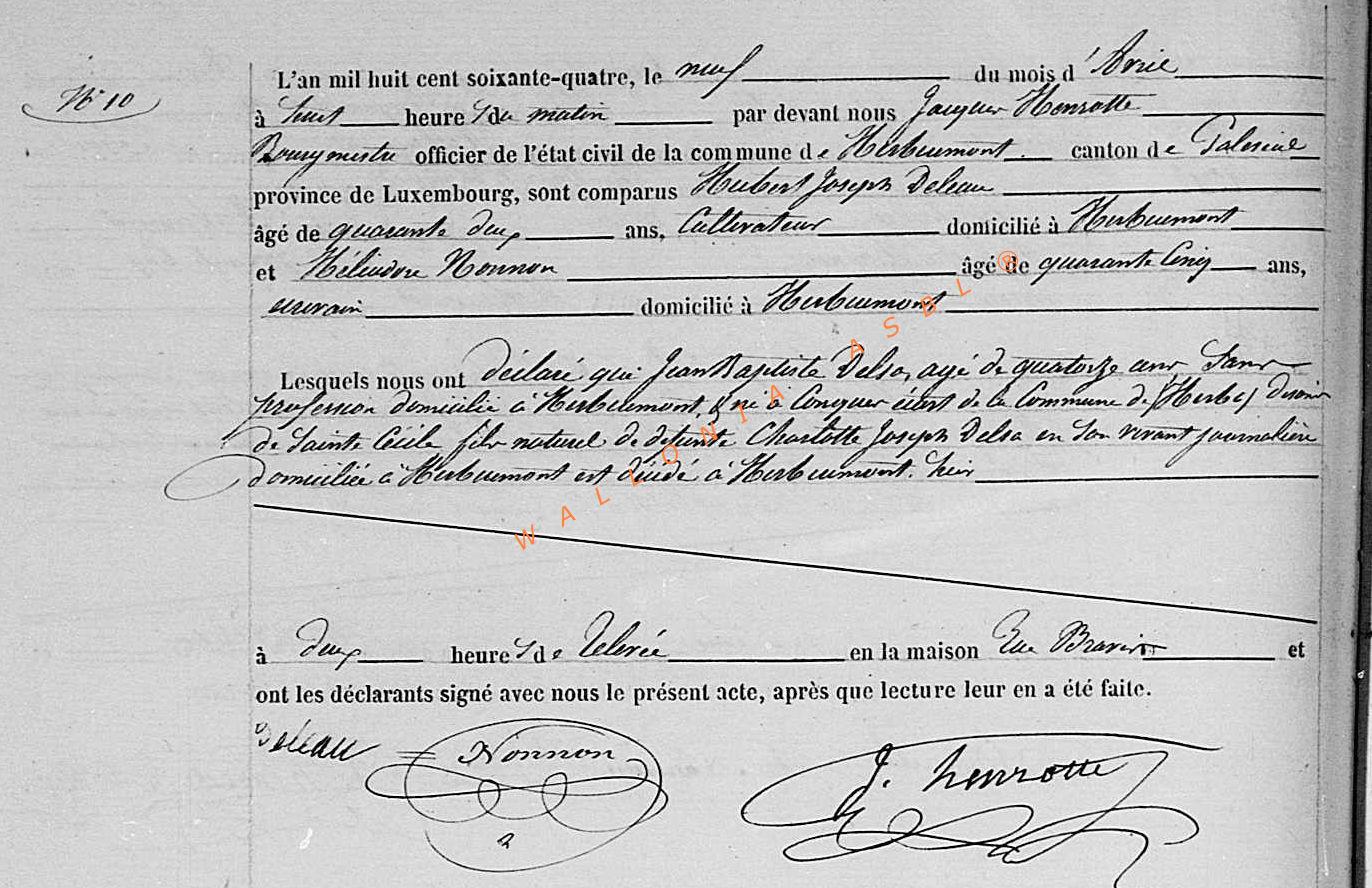 N° 10
L'an mil huit cent soixante-quatre, le neuf du mois d'Avril
à huit heures du matin par devant nous Jacques Henrotte
Bourgmestre officier de l'état civil de la commune de Herbeumont canton de Paliseul
province de Luxembourg, sont comparus Hubert Joseph Deleau
âgé de quarante deux ans, Cultivateur domicilié à Herbeumont
et Héliodore Nonnon âgé de quarante Cinq ans,
domicilié à Herbeumont
Lesquels nous ont déclaré que Jean Baptiste Delsa, agé de quatorze ans Sans
profession domicilié à Herbeumont, né à Conques de la Commune de
de Sainte Cécile fils naturel de défunte Charlotte Joseph Delsa en Son vivant journalière
domiciliée à Herbeumont est décédé à Herbeumont. hier
à deux heures de Relevée en la maison et
ont les déclarants signé avec nous le présent acte, après que lecture leur en a été faite.
Deleau Nonnon J. henrotte
WALLONIA ASBL ®